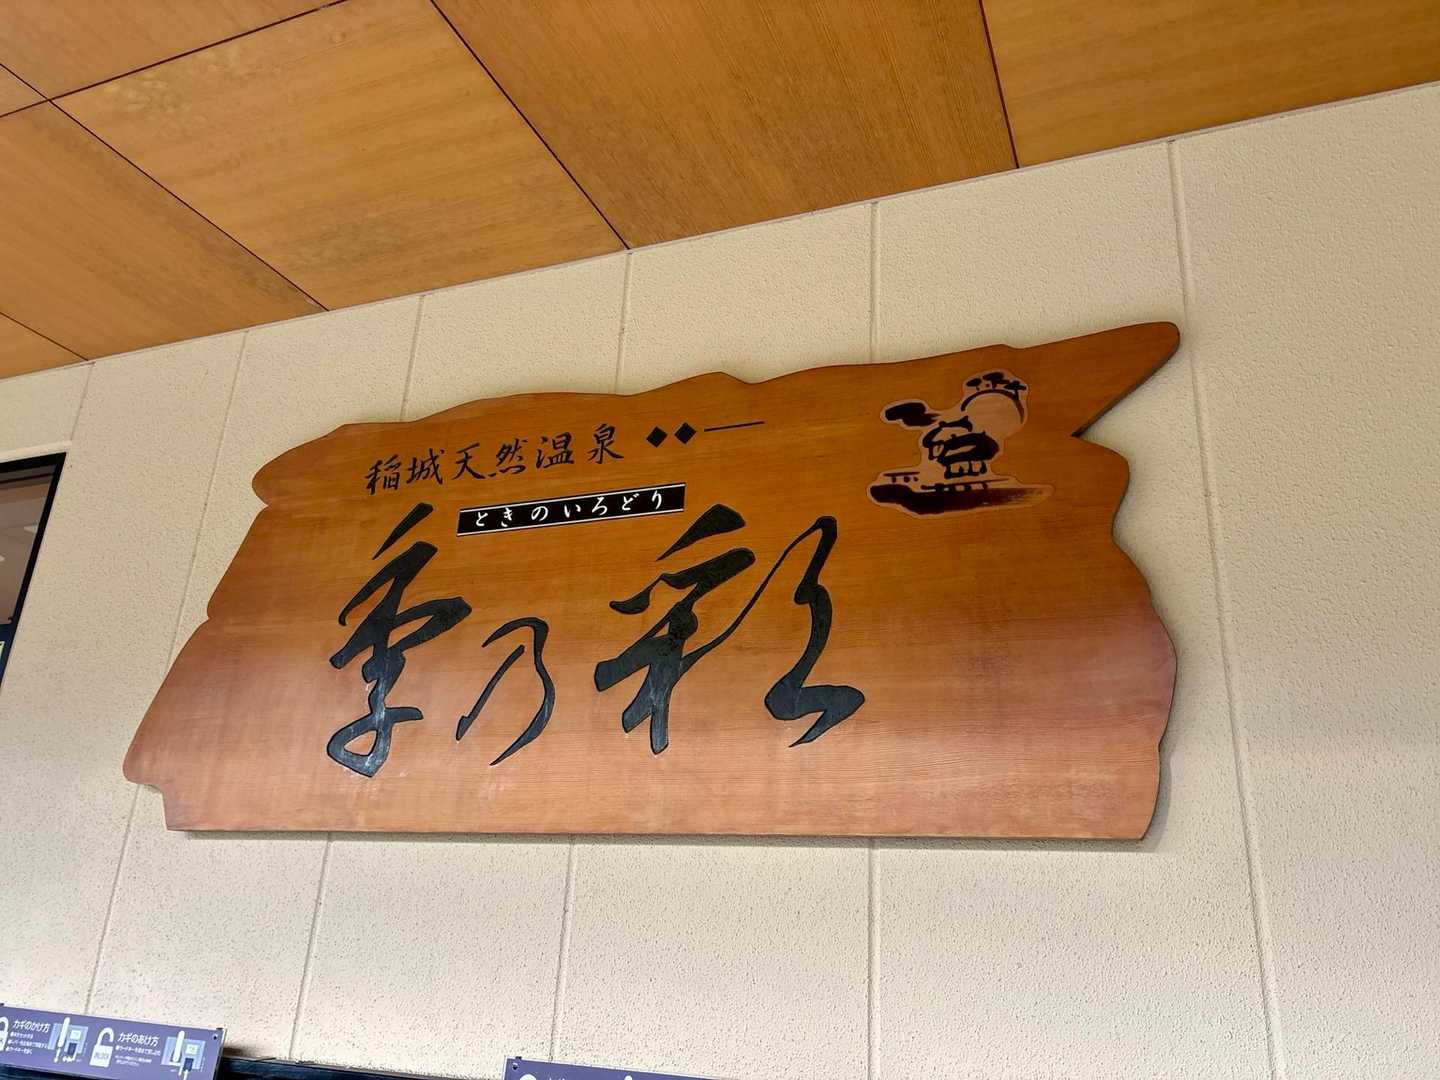 稲城天然温泉
ときのいろどり
季乃彩
カギのかけ方
カギのあけ方